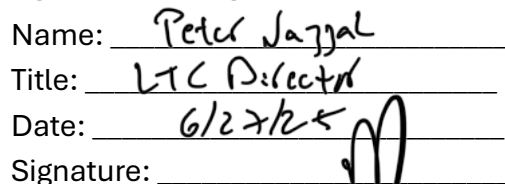 Name: Peter Jazzal
Title: LTC Director
Date: 6/27/25
Signature: